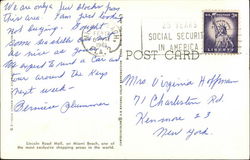 We are only a few blocks from
this area. I am just looking
not buying. Bought
Some
as nice as you
We expect to rent a Car and
tour around the Keys
next week -
Bernice Plummer
Lincoln Road Mall, on Miami Beach, one of
the most exclusive shopping areas in the world.
25 YEARS
SOCIAL SECURITY
IN AMERICA
POST CARD
Mrs Virginia Hoffman
71 Charleston Rd.
Kenmore 23
New York.